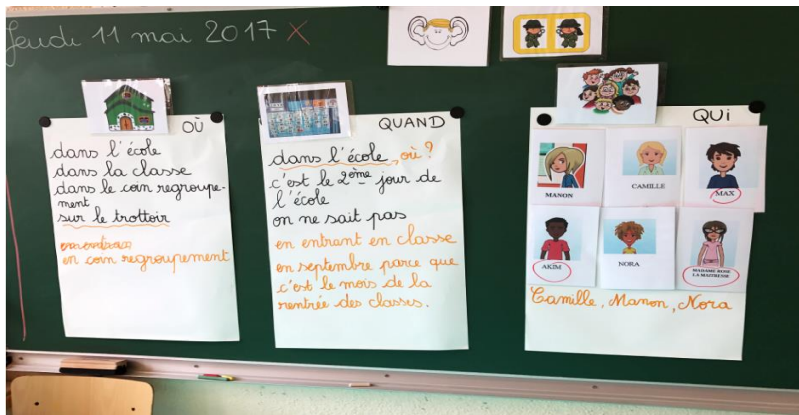 Jeudi 11 mai 2017 X
OÙ
dans l'école
dans la classe
dans le coin regroupe-
ment
sur le trottoir
en coin regroupement
QUAND
dans l'école, où ?
c'est le 2ème jour de
l'école
on ne sait pas
en entrant en classe
en septembre parce que
c'est le mois de la
rentrée des classes.
QUi
MANON
CAMILLE
MAX
AKIM
NORA
MADAME ROSE
LA MAITRESSE
Camille, Manon, Nora